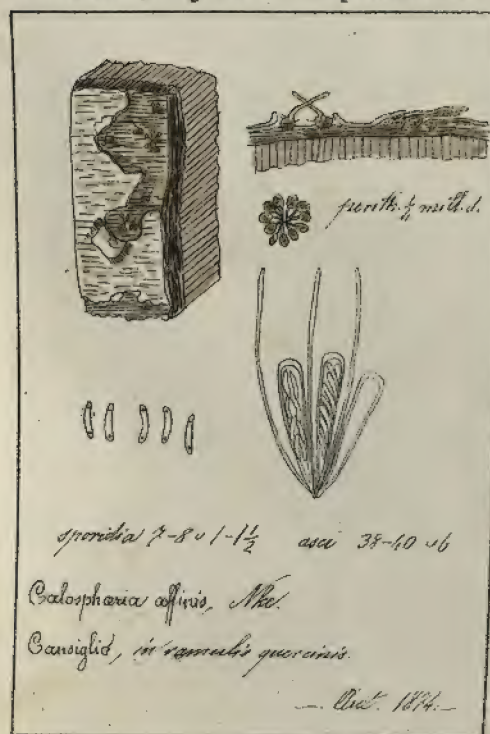 perith. ½ mill. d.
sporidia 7-8 υ 1-1½ asci 38-40 υ 6
Calosphæria affinis, Nke.
Cansiglio, in ramulis quercinis.
1874.